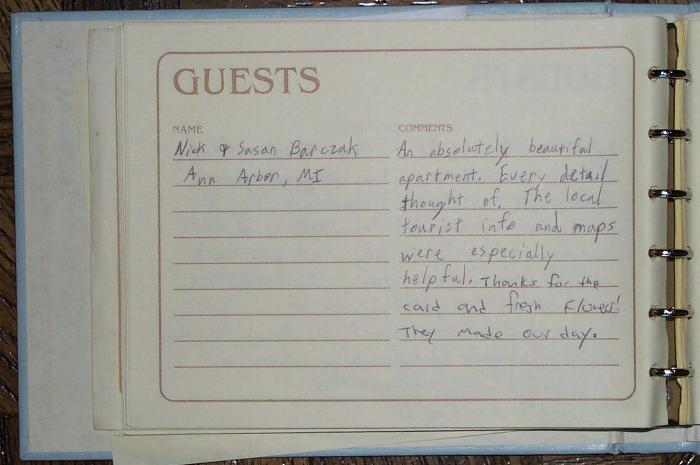 GUESTS
NAME
COMMENTS
Nick & Susan Barczak
Ann Arbor, MI
An absolutely beautiful
apartment. Every detail
thought of. The local
tourist info and maps
were especially
helpful. Thanks for the
card and fresh flowers!
They made our day.